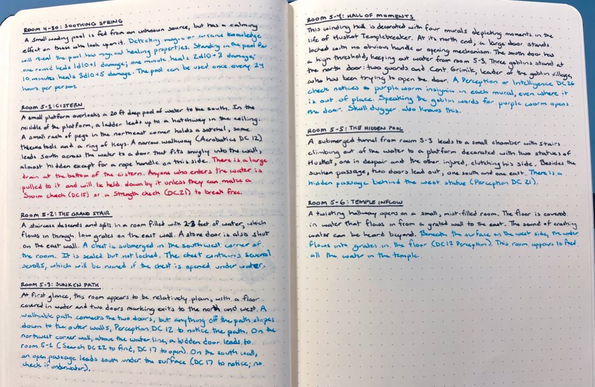 ROOM 4-20: SOOTHING SPRING
A small wading pool is fed from an unknown source, but has a calming
effect on those who look upon it. Detecting magic or arcane knowledge
will reveal the pool has magical healing properties. Standing in the pool for
one round heals 1d10+1 damage; one minute heals 2d10+3 damage;
10 minutes heals 3d10+5 damage. The pool can be used once every 24
hours per person.
ROOM 5-1: CISTERN
A small platform overlooks a 20 ft deep pool of water to the south. In the
middle of the platform, a ladder leads up to a hatchway in the ceiling.
A small rack of pegs in the northeast corner holds a satchel, some
tools and a ring of keys. A narrow walkway (Acrobatics DC 12)
leads south across the water to a door that fits snugly into the wall,
almost hidden except for a rope handle on this side. There is a large
drain at the bottom of the cistern. Anyone who enters the water is
pulled to it and will be held down by it unless they can make a
Swim check (DC 15) or a Strength check (DC 21) to break free.
ROOM 5-2: THE GRAND STAIR
A staircase descends and splits in a room filled with 2-3 feet of water, which
flows in through low grates on the east wall. A stone door is also shut
on the east wall. A chest is submerged in the southwest corner of
the room. It is sealed but not locked. The chest contains several
scrolls, which will be ruined if the chest is opened under water.
ROOM 5-3: SUNKEN PATH
At first glance, this room appears to be relatively plain, with a floor
covered in water and two doors marking exits to the north and west. A
walkable path connects the two doors, but anything off the path slopes
down to the outer walls, Perception DC 12 to notice the path. On the
northwest corner wall, above the water line, a hidden door leads to
room 5-1 (Search DC 22 to find, DC 17 to open). On the south wall,
an open passage leads south under the surface (DC 17 to notice; no
check if underwater).
ROOM 5-4: HALL OF MOMENTS
This winding hall is decorated with four murals depicting moments in the
life of Huskat Templebreaker. At its north end, a large door stands
locked with no obvious handle or opening mechanism. The south door has
a high threshold, keeping out water from room 5-3. Three goblins stand at
the north door: two guards and Cont Grimlik, leader of the goblin village,
who has been trying to open the door. A Perception or Intelligence DC 26
check notices a purple worm insignia on each mural, even where it
is out of place. Speaking the goblin words for purple worm opens
the door. Skullduggar also knows this.
ROOM 5-5: THE HIDDEN POOL
A submerged tunnel from room 5-3 leads to a small chamber with stairs
climbing out of the water to a platform decorated with two statues of
Huskat, one in despair and the other injured, clutching his side. Besides the
sunken passage, two doors lead out, one south and one east. There is a
hidden passage behind the west statue (Perception DC 21).
ROOM 5-6: TEMPLE INFLOW
A twisting hallway opens on a small, mist-filled room. The floor is covered
in water that flows in from a grated wall to the east. The sound of crashing
water can be heard beyond. Beneath the surface on the west side, the water
flows into grates in the floor (DC 15 Perception). This room appears to feed
all the water in the temple.